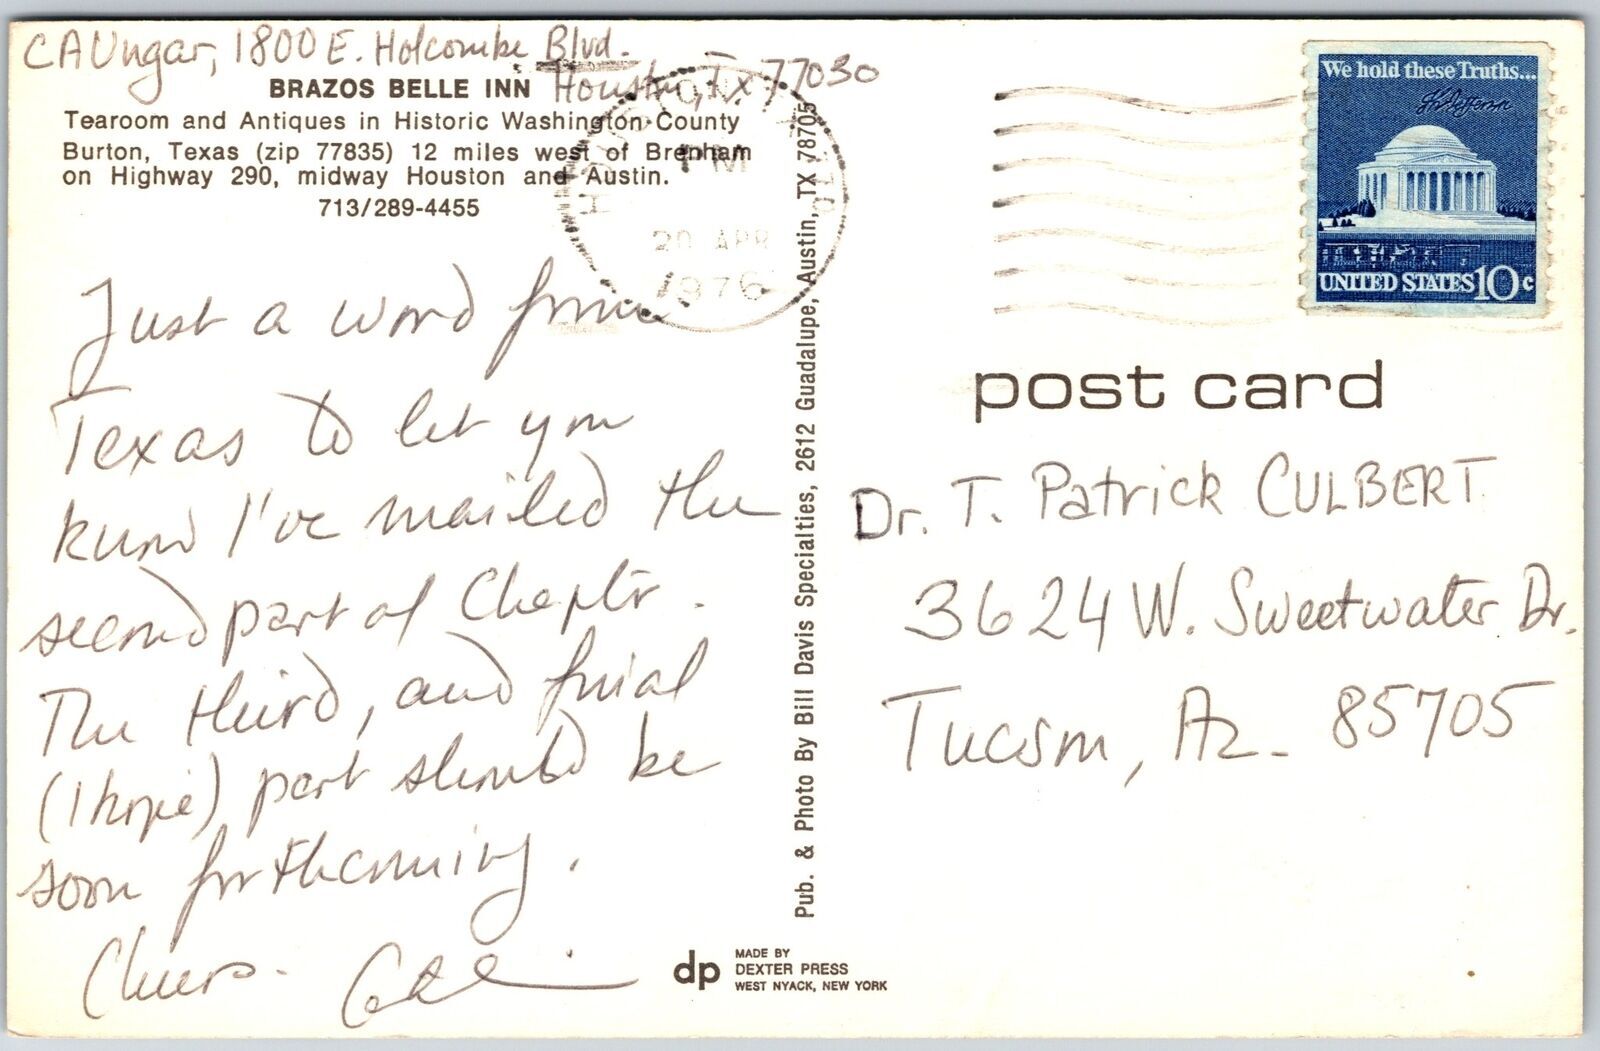 CAUngar, 1800 E. Holcombe Blvd.
Houston, Tx 77030
BRAZOS BELLE INN
Tearoom and Antiques in Historic Washington County
Burton, Texas (zip 77835) 12 miles west of Brenham
on Highway 290, midway Houston and Austin.
713/289-4455
PM
20 APR
1976
Just a word from
Texas to let you
know I've mailed the
second part of Chapter.
The third, and final
(I hope) part should be
soon forthcoming.
Cheers.
Pub. & Photo By Bill Davis Specialties, 2612 Guadalupe, Austin, TX 78705
dp
MADE BY
DEXTER PRESS
WEST NYACK, NEW YORK
We hold these Truths...
Th Jefferson
UNITED STATES 10c
post card
Dr. T. Patrick CULBERT
3624 W. Sweetwater Dr.
Tucson, Az. 85705